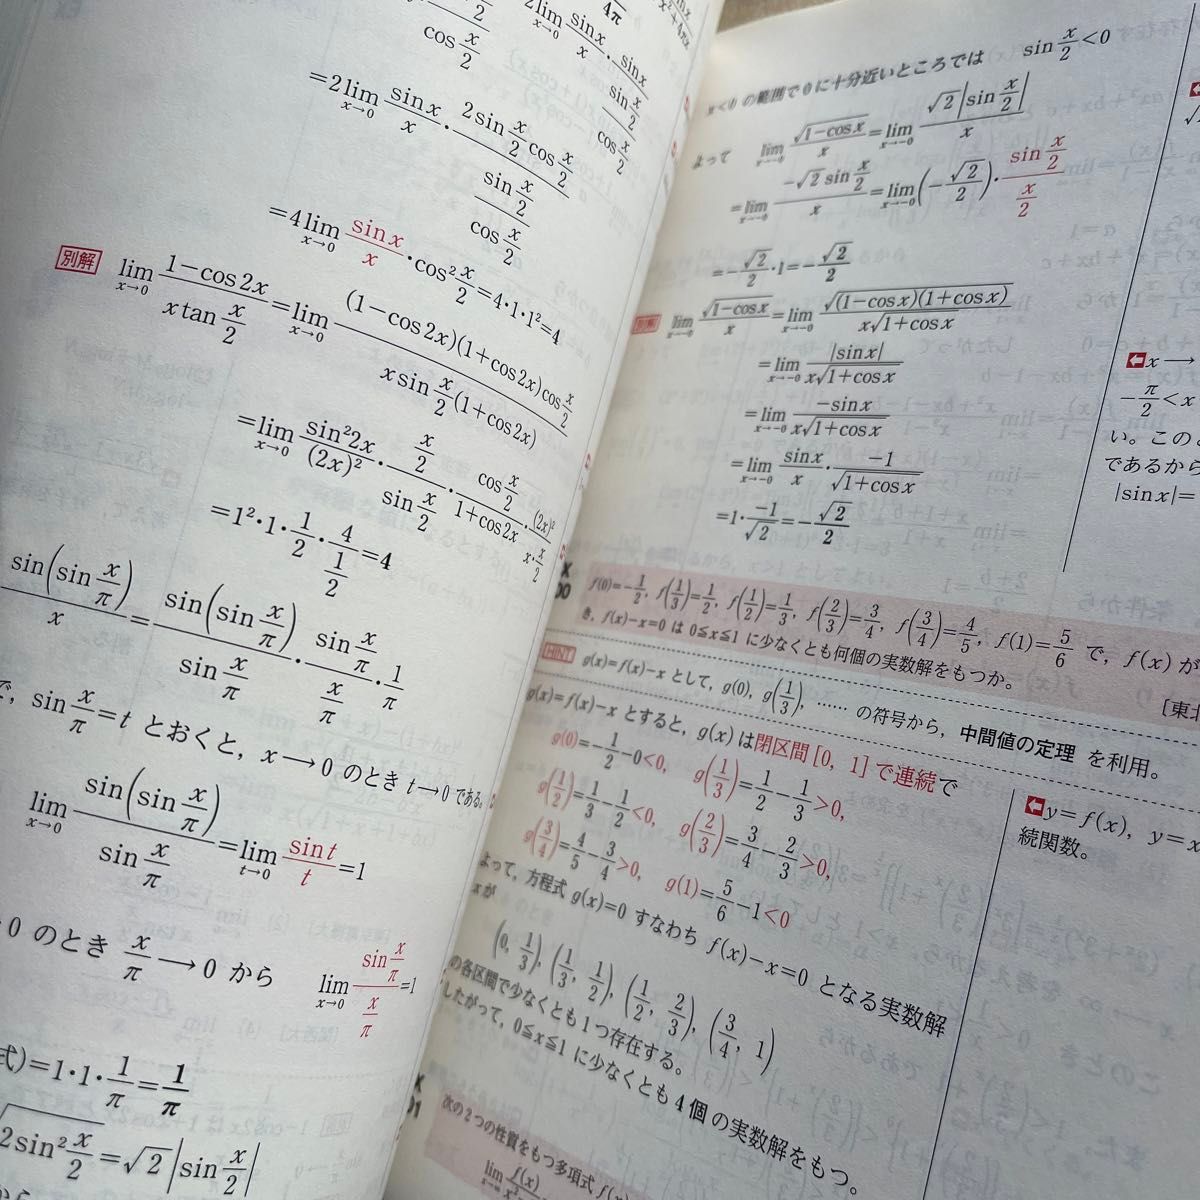 =2lim x→0 sinx/x・2sin x/2 cos x/2/(sin x/2/cos x/2)
=4lim x→0 sinx/x・cos² x/2=4・1・1²=4
別解 lim x→0 1−cos2x/(x tan x/2)=lim x→0 (1−cos2x)(1+cos2x)cos x/2/(x sin x/2(1+cos2x))
=lim x→0 sin²2x/(2x)²・(x/2)/(sin x/2)・(cos x/2)/(1+cos2x)・(2x)²/(x・x/2)
=1²・1・1/2・4/(1/2)=4
sin(sin x/π)/x=sin(sin x/π)/(sin x/π)・(sin x/π)/(x/π)・1/π
で, sin x/π=t とおくと, x→0 のとき t→0 である。
lim x→0 sin(sin x/π)/(sin x/π)=lim t→0 sint/t=1
0 のとき x/π→0 から lim x→0 (sin x/π)/(x/π)=1
式)=1・1・1/π=1/π
2sin² x/2=√2|sin x/2|
x<0 の範囲で 0 に十分近いところでは sin x/2<0
よって lim x→−0 √(1−cosx)/x=lim x→−0 √2|sin x/2|/x
=lim x→−0 −√2 sin x/2/x=lim x→−0(−√2/2)・(sin x/2)/(x/2)
=−√2/2・1=−√2/2
別解 lim x→−0 √(1−cosx)/x=lim x→−0 √((1−cosx)(1+cosx))/(x√(1+cosx))
=lim x→−0 |sinx|/(x√(1+cosx))
=lim x→−0 −sinx/(x√(1+cosx))
=lim x→−0 sinx/x・−1/√(1+cosx)
=1・−1/√2=−√2/2
x→
−π/2<x
い。このと
であるから
|sinx|=
f(0)=−1/2, f(1/3)=1/2, f(1/2)=1/3, f(2/3)=3/4, f(3/4)=4/5, f(1)=5/6 で, f(x) が
き, f(x)−x=0 は 0≦x≦1 に少なくとも何個の実数解をもつか。
[東北
HINT g(x)=f(x)−x として, g(0), g(1/3), …… の符号から, 中間値の定理 を利用。
g(x)=f(x)−x とすると, g(x) は閉区間 [0, 1] で連続で
g(0)=−1/2−0<0, g(1/3)=1/2−1/3>0,
g(1/2)=1/3−1/2<0, g(2/3)=3/4−2/3>0,
g(3/4)=4/5−3/4>0, g(1)=5/6−1<0
y=f(x), y=x
続関数。
よって, 方程式 g(x)=0 すなわち f(x)−x=0 となる実数解
xが
(0, 1/3), (1/3, 1/2), (1/2, 2/3), (3/4, 1)
の各区間で少なくとも1つ存在する。
したがって, 0≦x≦1 に少なくとも 4個 の実数解をもつ。
次の2つの性質をもつ多項式 f(x)
lim f(x)